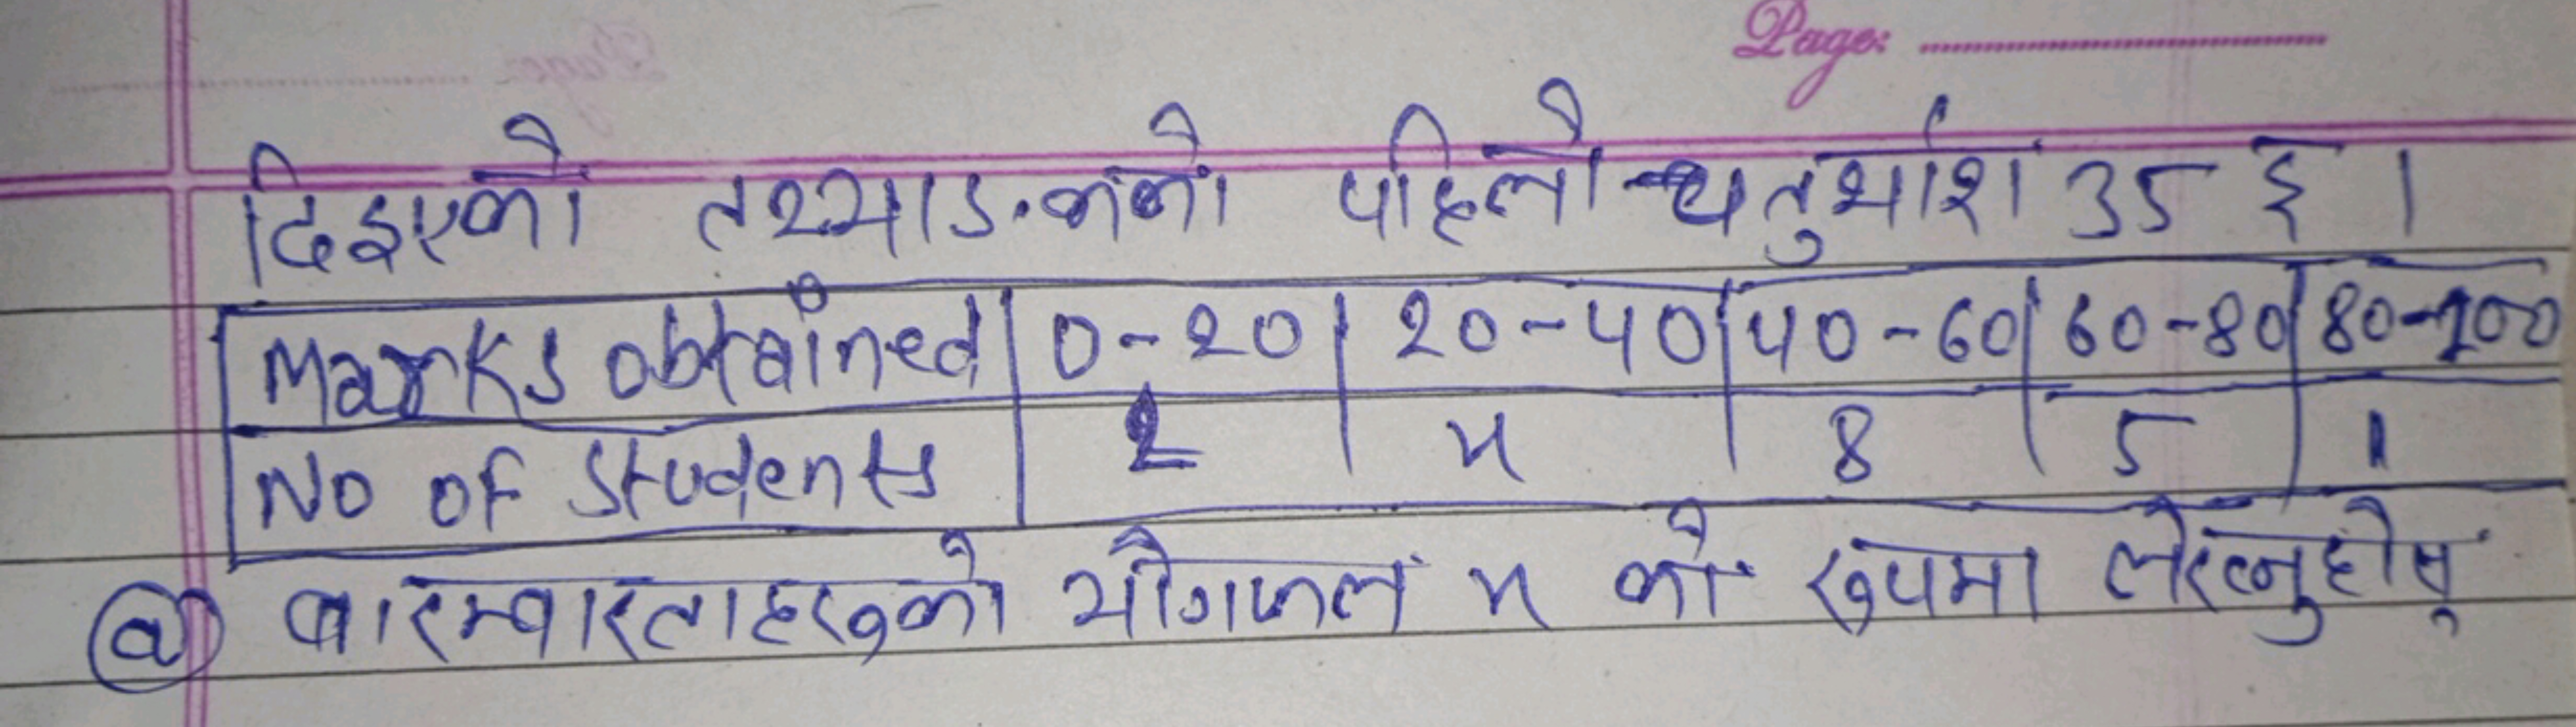 Page:
दिइएको तथ्याङ्कको पहिलो चतुर्थांश 35 छ ।
Marks obtained 0-20 20-40 40-60 60-80 80-100
No of Students 2 x 8 5 1
(a) बारम्बारताहरूको योगफल x को रूपमा लेख्नुहोस्